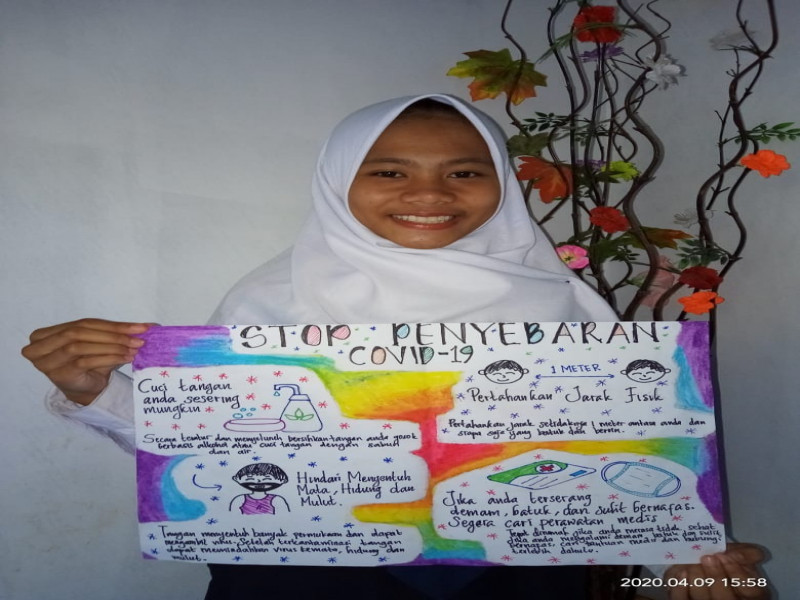 STOP PENYEBARAN
COVID-19
Cuci tangan
anda sesering
mungkin
Secara teratur dan menyeluruh bersihkan tangan anda gosok
berbasis alkohol atau cuci tangan dengan sabun
dan air.
1 METER
Pertahankan Jarak Fisik
Pertahankan jarak setidaknya 1 meter antara anda dan
siapa saja yang batuk dan bersin.
Hindari Menyentuh
Mata, Hidung dan
Mulut.
Tangan menyentuh banyak permukaan dan dapat
mengambil virus. Setelah terkontaminasi tangan
dapat memindahkan virus kemata, hidung dan
mulut.
Jika anda terserang
demam, batuk, dan sulit bernafas.
Segera cari perawatan medis
Tetap dirumah jika anda merasa tidak sehat
jika anda mengalami demam, batuk dan sulit
bernafas, cari bantuan medis dan hubungi
terlebih dahulu.
2020.04.09 15:58